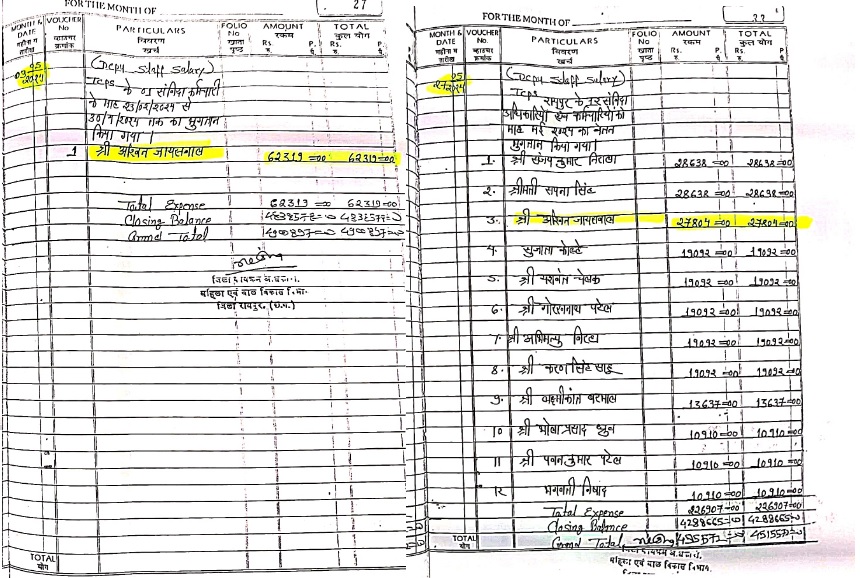 FOR THE MONTH OF
27
MONTH & DATE
महीना व तारीख
VOUCHER No
व्हाउचर क्रमांक
PARTICULARS
विवरण
खर्च
FOLIO No
खाता पृष्ठ
AMOUNT
रकम
Rs. P.
रु. पै.
TOTAL
कुल योग
Rs. P.
रु. पै.
(Dcpu Staff Salary)
के 01 संविदा कर्मचारी
तक का भुगतान
किया गया।
1 श्री जायसवाल 62319=00 62319=00
Total Expense 62319=00 62319=00
Closing Balance
Grand Total
महिला एवं बाल विकास विभाग
जिला रायपुर, (छ.ग.)
TOTAL
योग
FOR THE MONTH OF
MONTH & DATE
महीना व तारीख
VOUCHER No
व्हाउचर क्रमांक
PARTICULARS
विवरण
खर्च
FOLIO No
खाता पृष्ठ
AMOUNT
रकम
Rs. P.
रु. पै.
TOTAL
कुल योग
Rs. P.
रु. पै.
(Dcpu Staff Salary)
रायपुर के 12 संविदा
अधिकारियों एवं कर्मचारियों को
माह मई 2024 का वेतन
भुगतान किया गया।
1. श्री संजय कुमार निराला 28638=00 28638=00
2. श्रीमती सपना सिंह 28638=00 28638=00
3. श्री जायसवाल 27804=00 27804=00
4. सुजाता 19092=00 19092=00
5. श्री यशवंत चेलक 19092=00 19092=00
6. श्री गोरखनाथ पटेल 19092=00 19092=00
7. श्री अभिमन्यु 19092=00 19092=00
8. श्री करण सिंह साहू 19092=00 19092=00
9. श्री लक्ष्मीकांत 13637=00 13637=00
10 श्री भोला प्रसाद ध्रुव 10910=00 10910=00
11 श्री पवन कुमार पटेल 10910=00 10910=00
12 भगवती निषाद 10910=00 10910=00
Total Expense 226907=00 226907=00
Closing Balance 4288665=00 4288665=00
Grand Total
महिला एवं बाल विकास विभाग.
TOTAL
योग